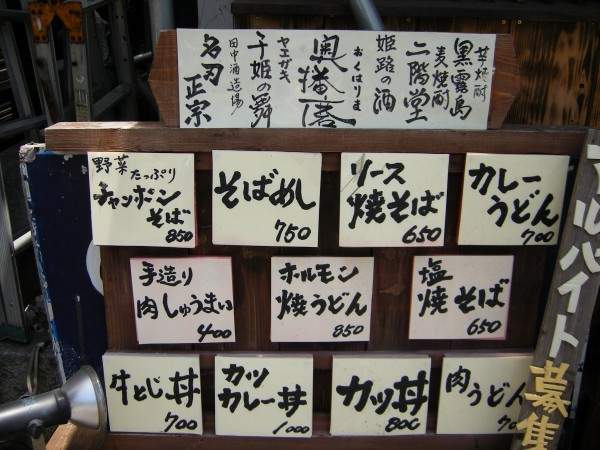 芋焼酎
黒霧島
麦焼酎
二階堂
姫路の酒
おくはりま
奥播磨
ヤエガキ
千姫の舞
田中酒造場
名刃
正宗
野菜
たっぷり
チャンポン
そば
850
そばめし
750
ソース
焼そば
650
カレー
うどん
700
手造り
肉しゅうまい
400
ホルモン
焼うどん
850
塩
焼そば
650
牛とじ丼
700
カツ
カレー丼
1000
カツ丼
800
肉うどん
アルバイト募集